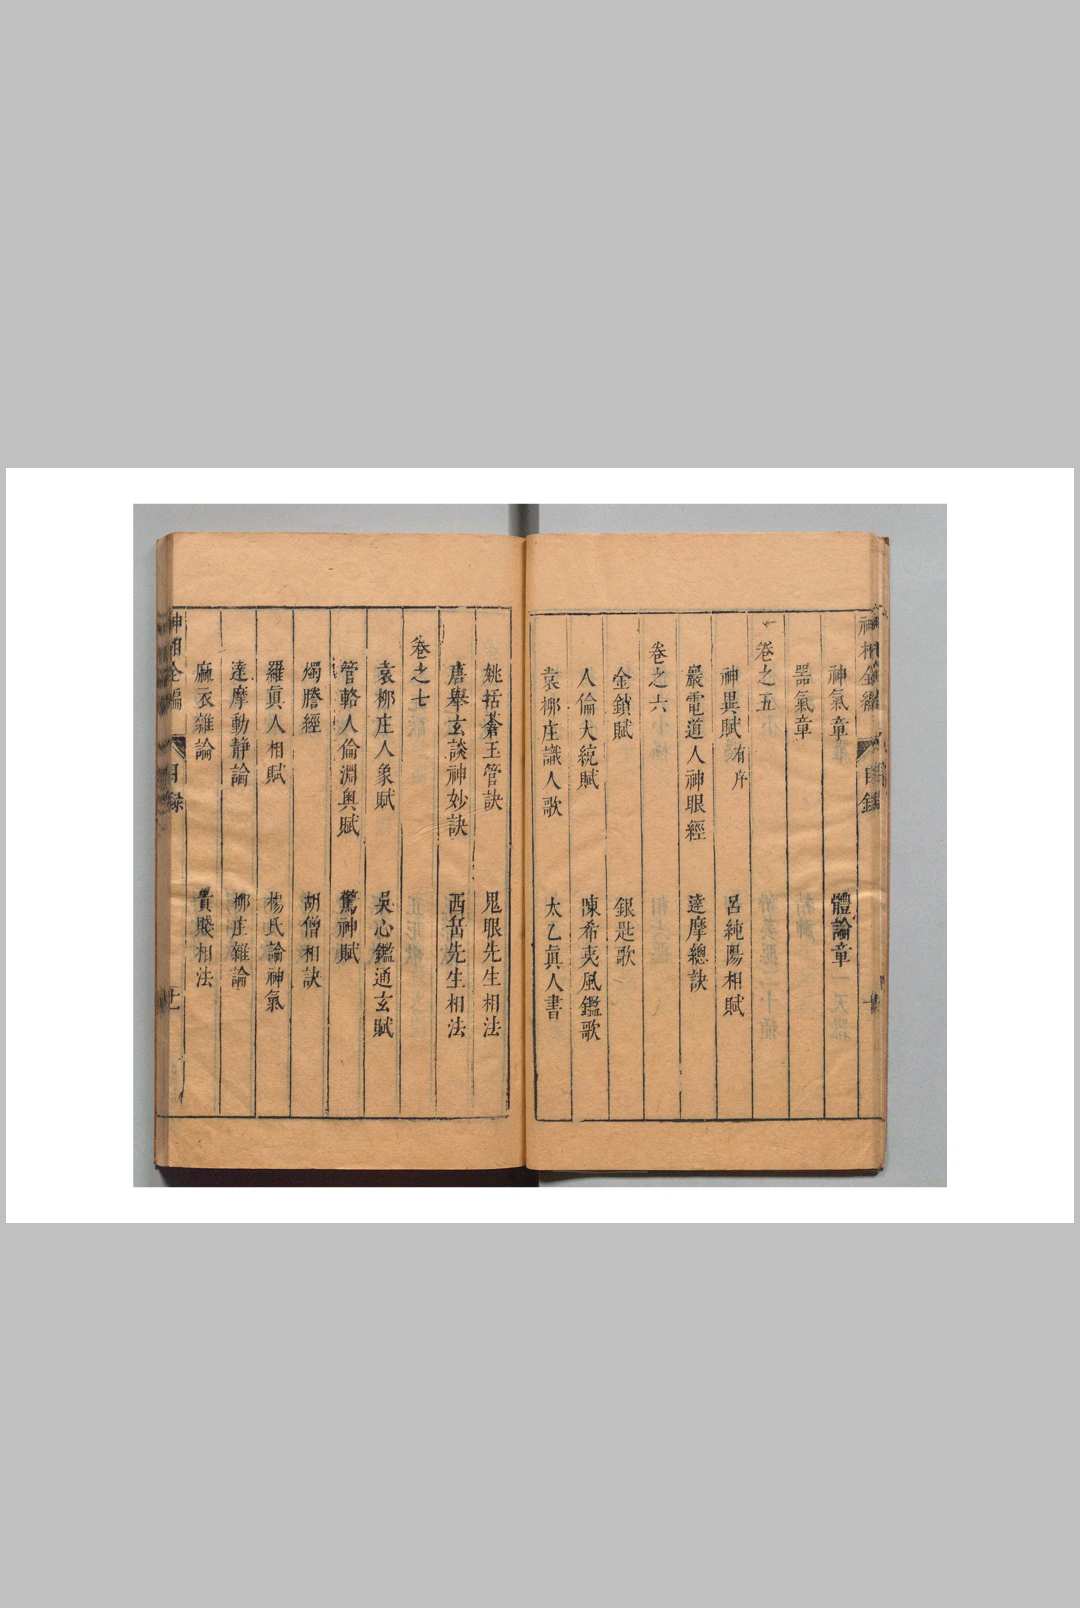 神氣章　體論章
器氣章
卷之五
神異賦有序　呂純陽相賦
巖電道人神眼經　達摩總訣
卷之六
金鎖賦　銀匙歌
人倫大統賦　陳希夷風鑑歌
袁柳庄識人歌　太乙眞人書
姚括蒼玉管訣　鬼眼先生相法
唐舉玄談神妙訣　西岳先生相法
卷之七
袁柳庄人象賦　吳心鑑通玄賦
管輅人倫淵奧賦　驚神賦
燭膽經　胡僧相訣
羅眞人相賦　楊氏論神氣
達摩動靜論　柳庄雜論
麻衣雜論　貴賤相法
神相全編　目錄　十一